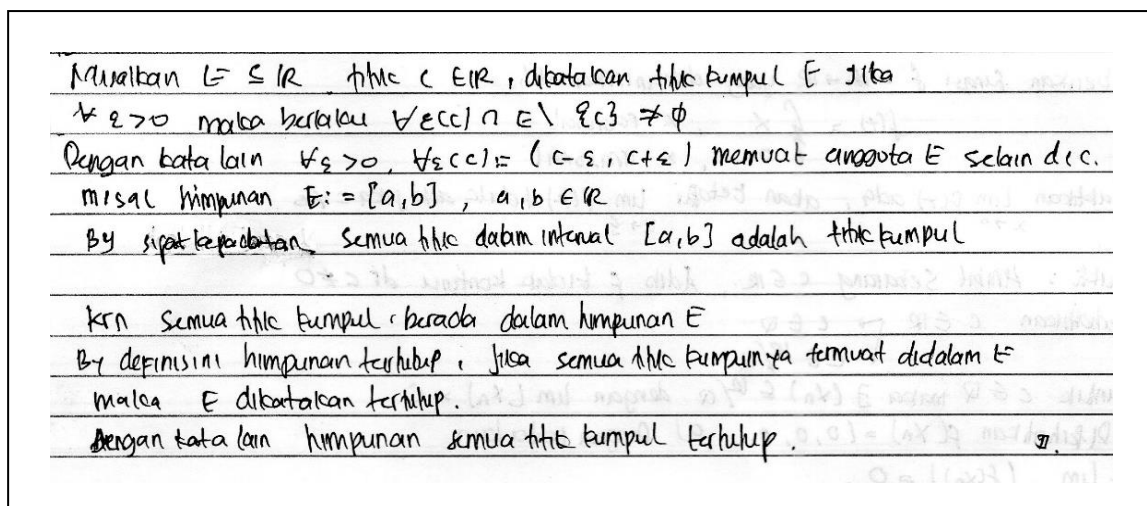 Misalkan E ⊆ ℝ titik c ∈ ℝ, dikatakan titik kumpul E jika
∀ ε>0 maka berlaku Vε(c) ∩ E \ {c} ≠ ∅
Dengan kata lain ∀ε >0, Vε(c) := (c-ε, c+ε) memuat anggota E selain di c.
misal himpunan E := [a,b], a,b ∈ ℝ
By sipat kepadatan semua titik dalam interval [a,b] adalah titik kumpul
krn semua titik kumpul berada dalam himpunan E
By definisini himpunan tertutup, jika semua titik kumpulnya termuat didalam E
maka E dikatakan tertutup.
dengan kata lain himpunan semua titik kumpul tertutup.